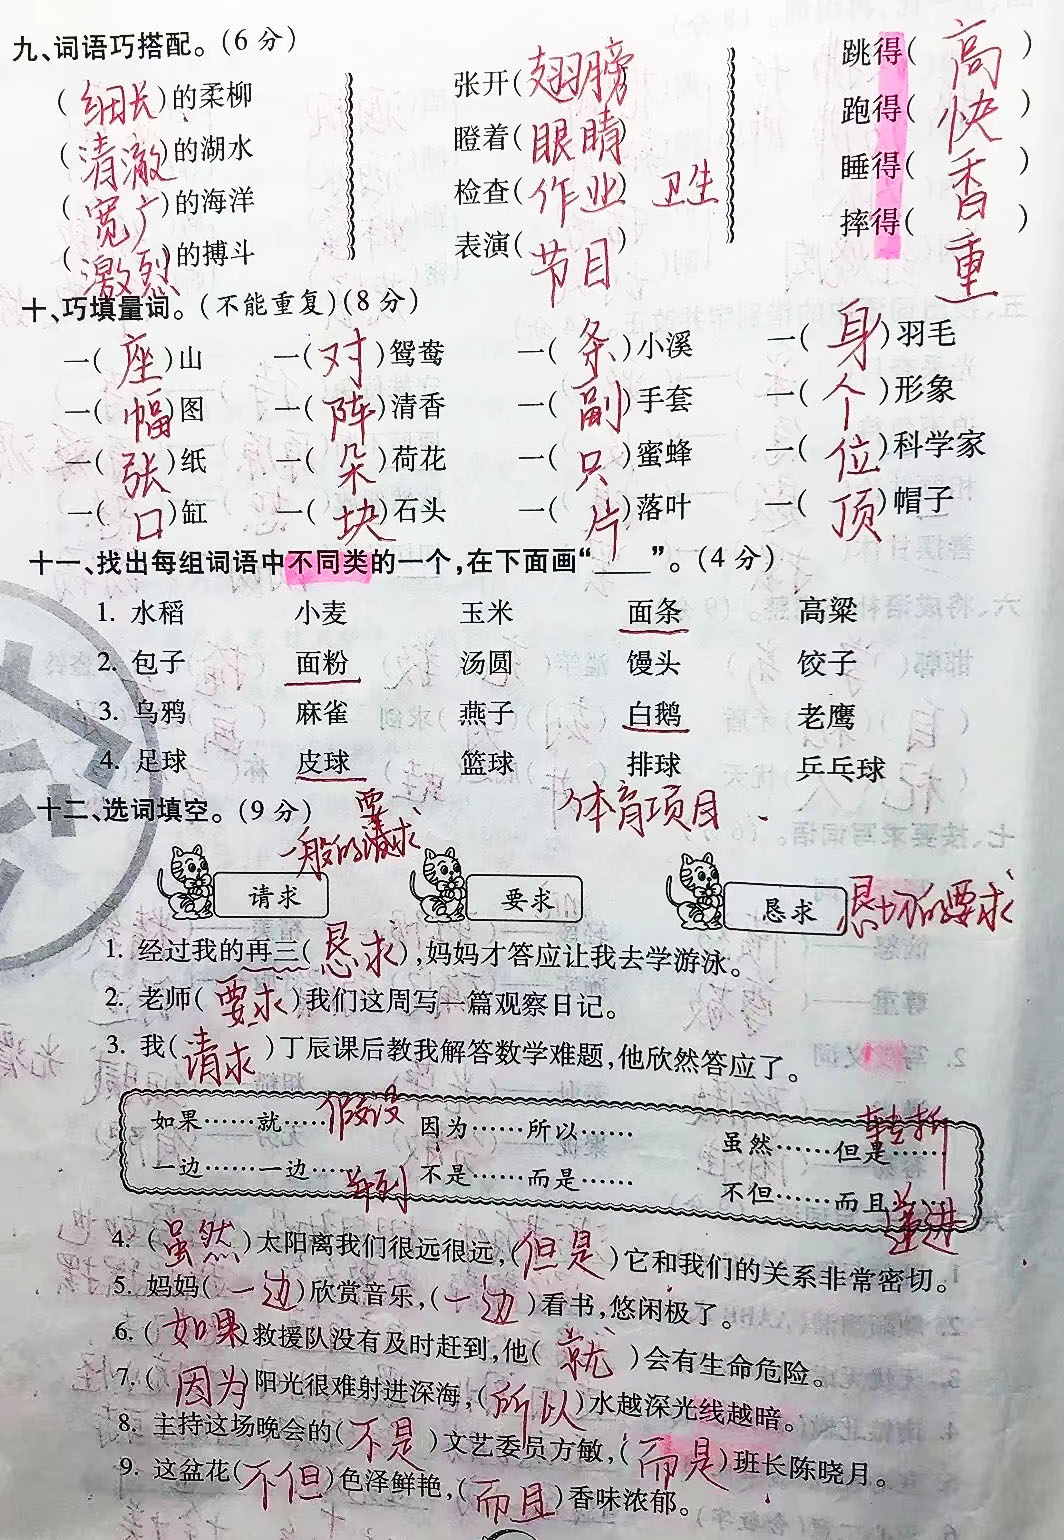 九、词语巧搭配。(6分)
(细长)的柔柳 张开(翅膀) 跳得(高)
(清澈)的湖水 瞪着(眼睛) 跑得(快)
(宽广)的海洋 检查(作业) 卫生 睡得(香)
(激烈)的搏斗 表演(节目) 摔得(重)
十、巧填量词。(不能重复)(8分)
一(座)山 一(对)鸳鸯 一(条)小溪 一(身)羽毛
一(幅)图 一(阵)清香 一(副)手套 一(个)形象
一(张)纸 一(朵)荷花 一(只)蜜蜂 一(位)科学家
一(口)缸 一(块)石头 一(片)落叶 一(顶)帽子
十一、找出每组词语中不同类的一个,在下面画“____”。(4分)
1. 水稻 小麦 玉米 面条 高粱
2. 包子 面粉 汤圆 馒头 饺子
3. 乌鸦 麻雀 燕子 白鹅 老鹰
4. 足球 皮球 篮球 排球 乒乓球
十二、选词填空。(9分) 体育项目
一般的要求
请求 要求 恳求 恳切的要求
1. 经过我的再三(恳求),妈妈才答应让我去学游泳。
2. 老师(要求)我们这周写一篇观察日记。
3. 我(请求)丁辰课后教我解答数学难题,他欣然答应了。
如果……就……假设 因为……所以…… 虽然……但是……转折
一边……一边……并列 不是……而是…… 不但……而且……递进
4. (虽然)太阳离我们很远很远,(但是)它和我们的关系非常密切。
5. 妈妈(一边)欣赏音乐,(一边)看书,悠闲极了。
6. (如果)救援队没有及时赶到,他(就)会有生命危险。
7. (因为)阳光很难射进深海,(所以)水越深光线越暗。
8. 主持这场晚会的(不是)文艺委员方敏,(而是)班长陈晓月。
9. 这盆花(不但)色泽鲜艳,(而且)香味浓郁。